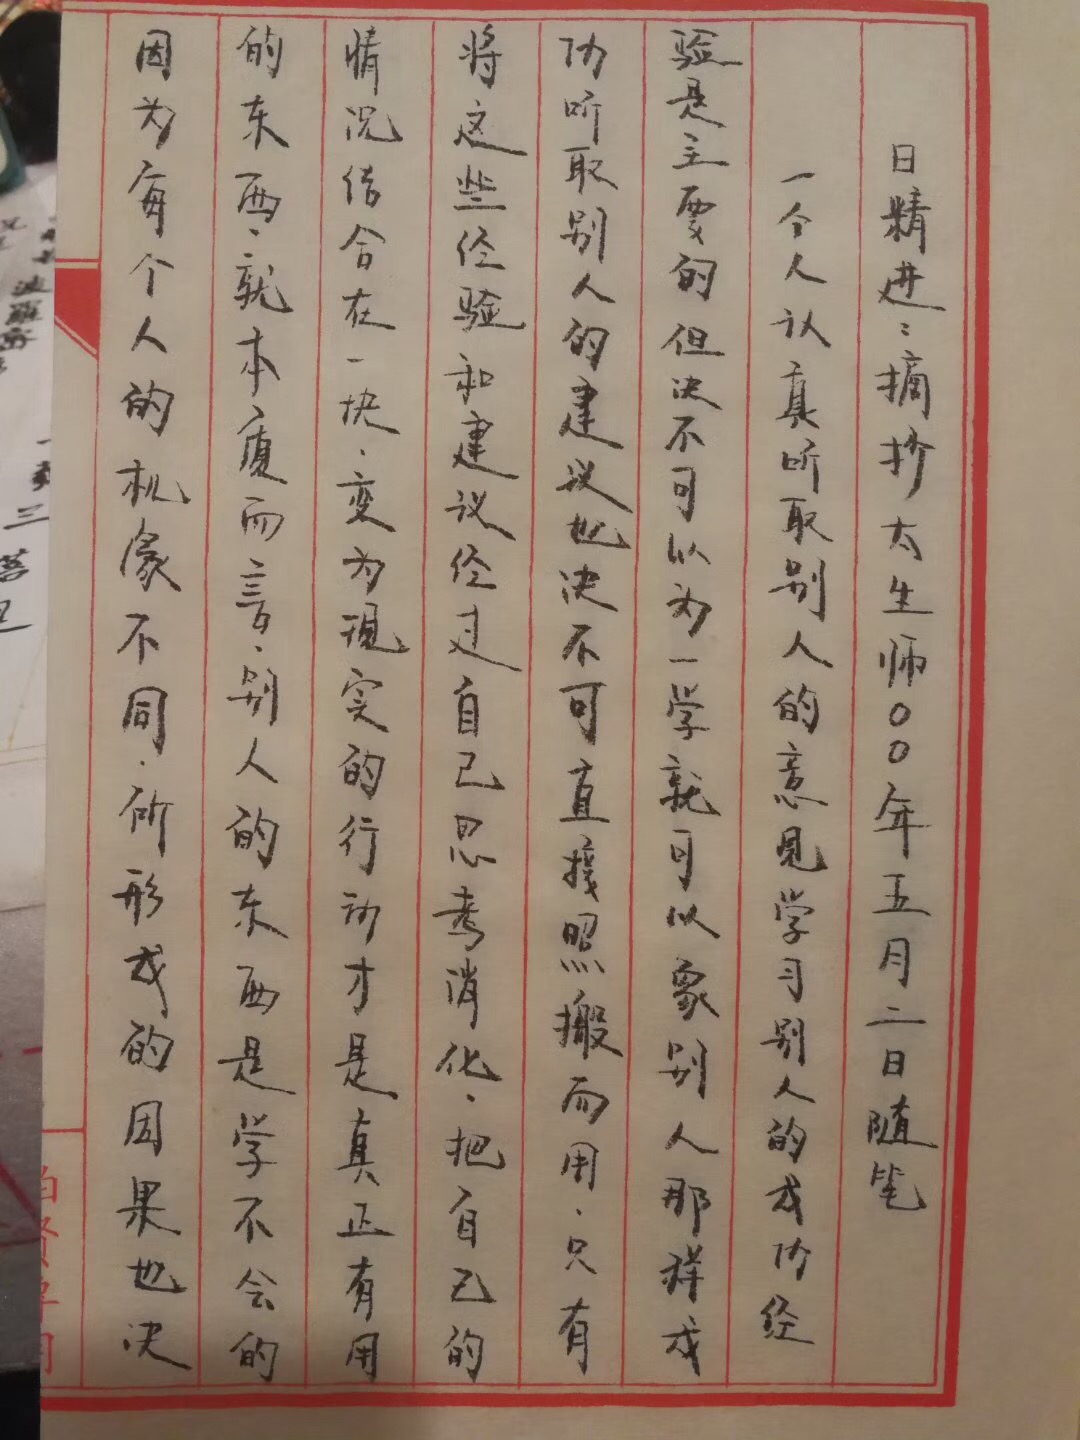 日精进：摘抄太生师00年五月二日随笔
一个人认真听取别人的意见学习别人的成功经
验是主要的但决不可以为一学就可以象别人那样成
功听取别人的建议也决不可直接照搬而用．只有
将这些经验和建议经过自己思考消化．把自己的
情况结合在一块．变为现实的行动才是真正有用
的东西．就本质而言．别人的东西是学不会的
因为每个人的机象不同．所形成的因果也决